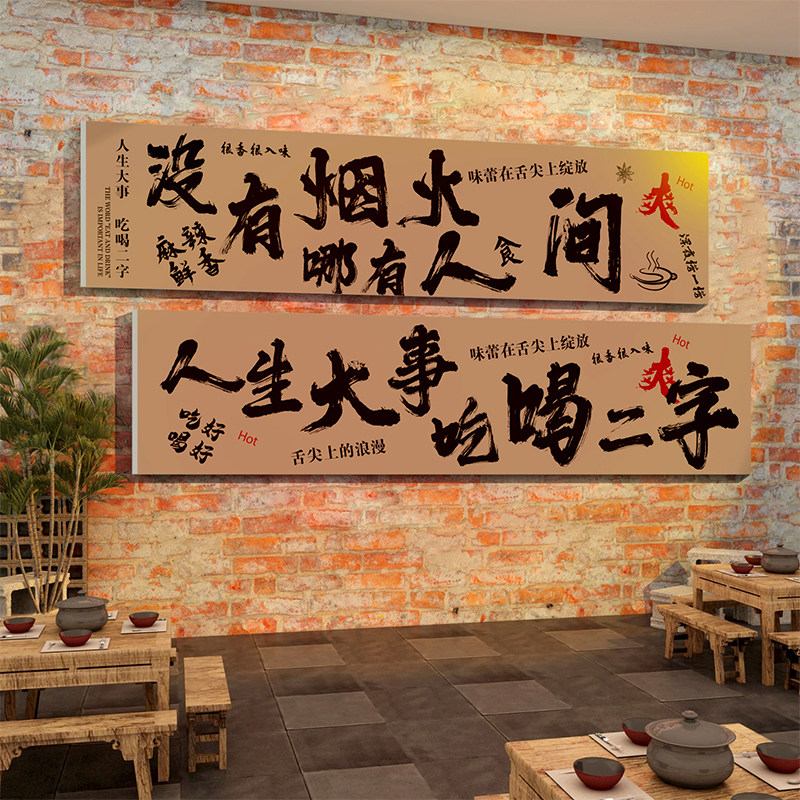 人生大事 吃喝二字
THE WORD "EAT AND DRINK"
IS IMPORTANT IN LIFE
很香很入味
味蕾在舌尖上绽放
没有烟火
哪有人食间
麻辣
鲜香
爽
Hot
深夜搞一搞
人生大事
吃喝二字
味蕾在舌尖上绽放
很香很入味
Hot
爽
吃好
喝好
Hot
舌尖上的浪漫